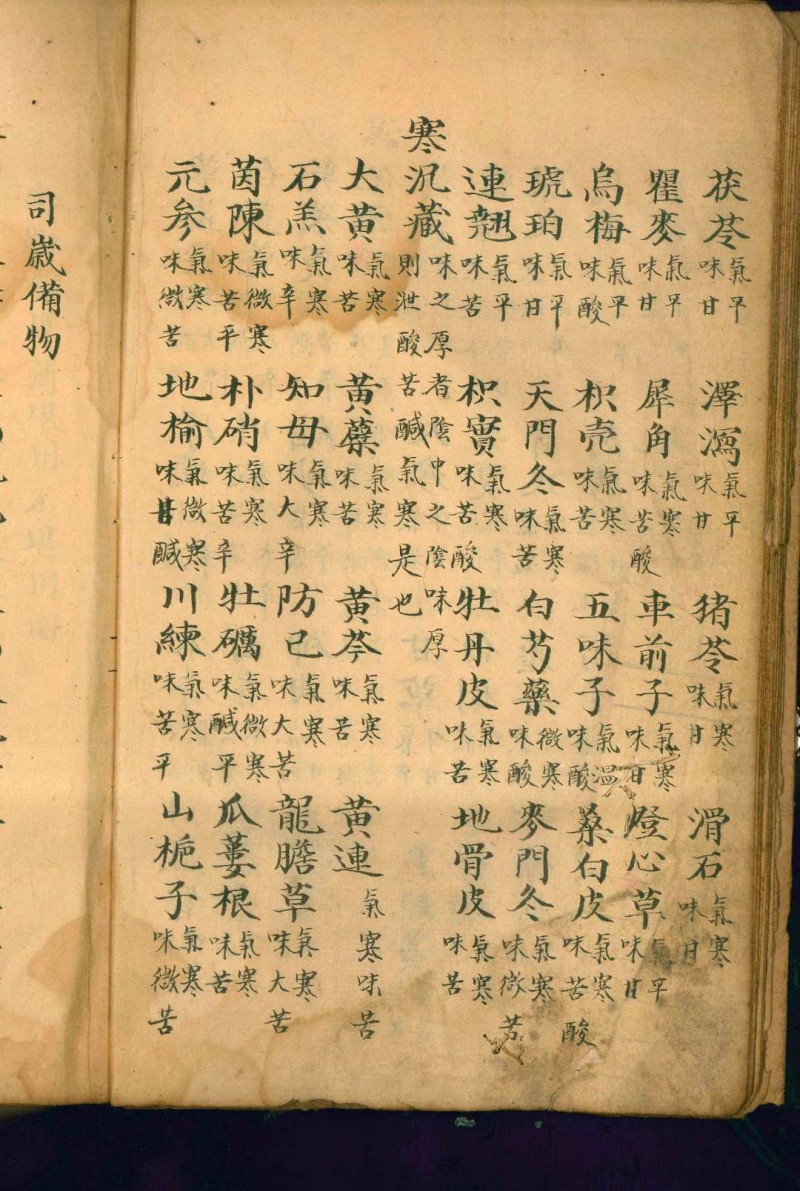 茯苓氣平味甘 澤瀉氣平味甘 猪苓氣寒味甘 滑石氣寒味甘
瞿麥氣平味甘 犀角氣寒味苦酸 車前子氣寒味甘 燈心草氣平味甘
烏梅氣平味酸 枳壳氣寒味苦 五味子氣温味酸 桑白皮氣寒味苦酸
琥珀氣平味甘 天門冬氣寒味苦 白芍藥微寒味酸 麥門冬氣寒味微苦
連翹氣平味苦 枳實氣寒味苦酸 牡丹皮氣寒味苦 地骨皮氣寒味苦
寒沉藏味之厚者陰中之陰味厚則泄酸苦鹹氣寒是也
大黄氣寒味苦 黄蘗氣寒味苦 黄芩氣寒味苦 黄連氣寒味苦
石羔氣寒味辛 知母氣寒味大辛 防己氣寒味大苦 龍膽草氣寒味大苦
茵陳氣微寒味苦平 朴硝氣寒味苦辛 牡礪氣微寒味鹹平 瓜蔞根氣寒味苦
元參氣寒味微苦 地榆氣微寒味甘鹹 川練氣寒味苦平 山梔子氣寒味微苦
司歲備物